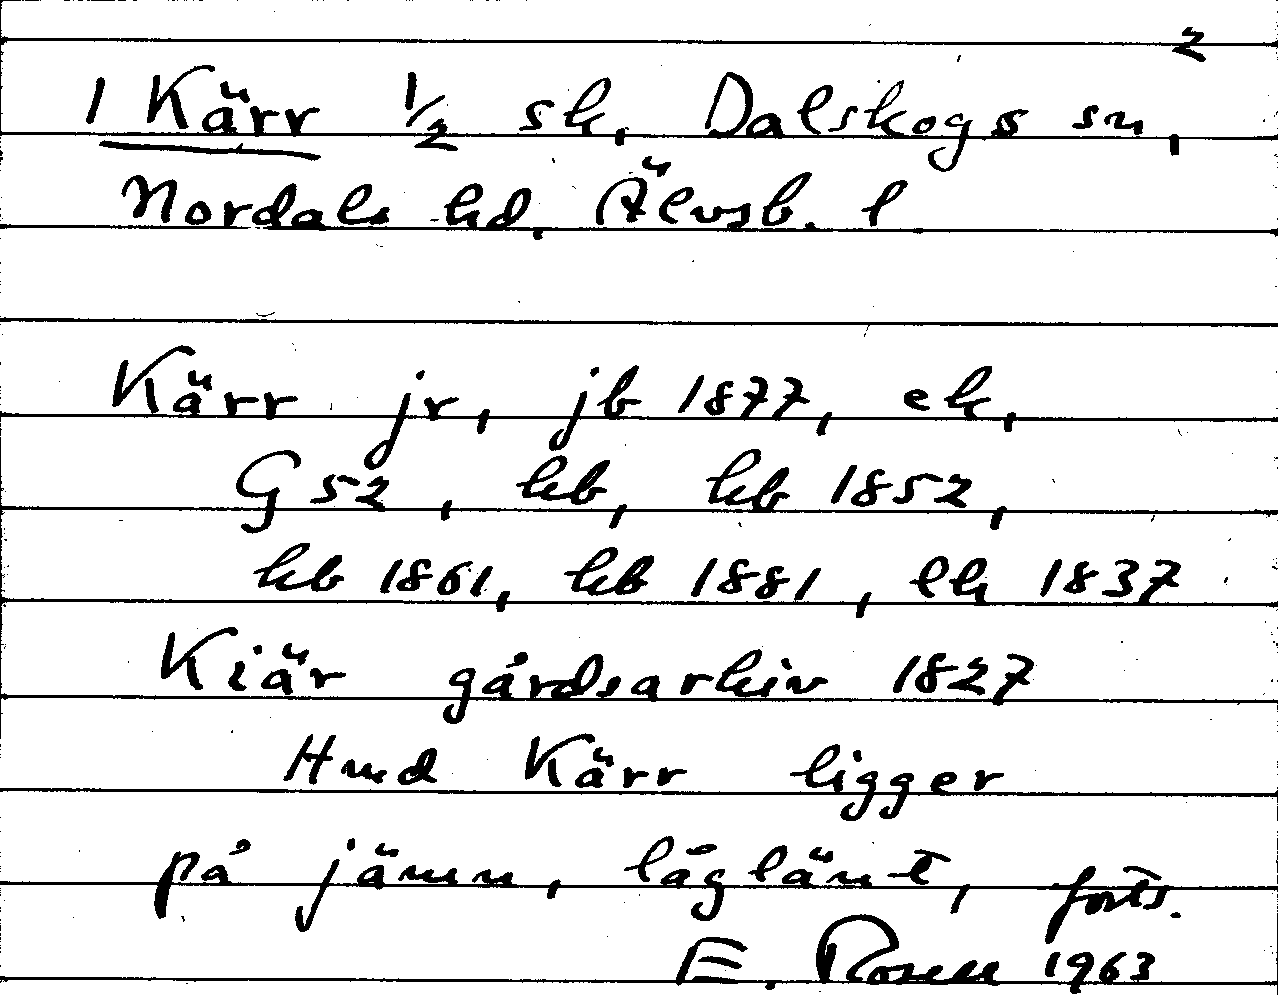 2
1 Kärr 1/2 sk, Dalskogs sn,
Nordals hd. Älvsb. l
Kärr jr, jb 1877, ek,
G 52, hb, hb 1852,
hb 1861, hb 1881, lh 1837
Kiär gårdsarkiv 1827
Hmd Kärr ligger
på jämn, låglänt, forts.
E. Rosell 1963